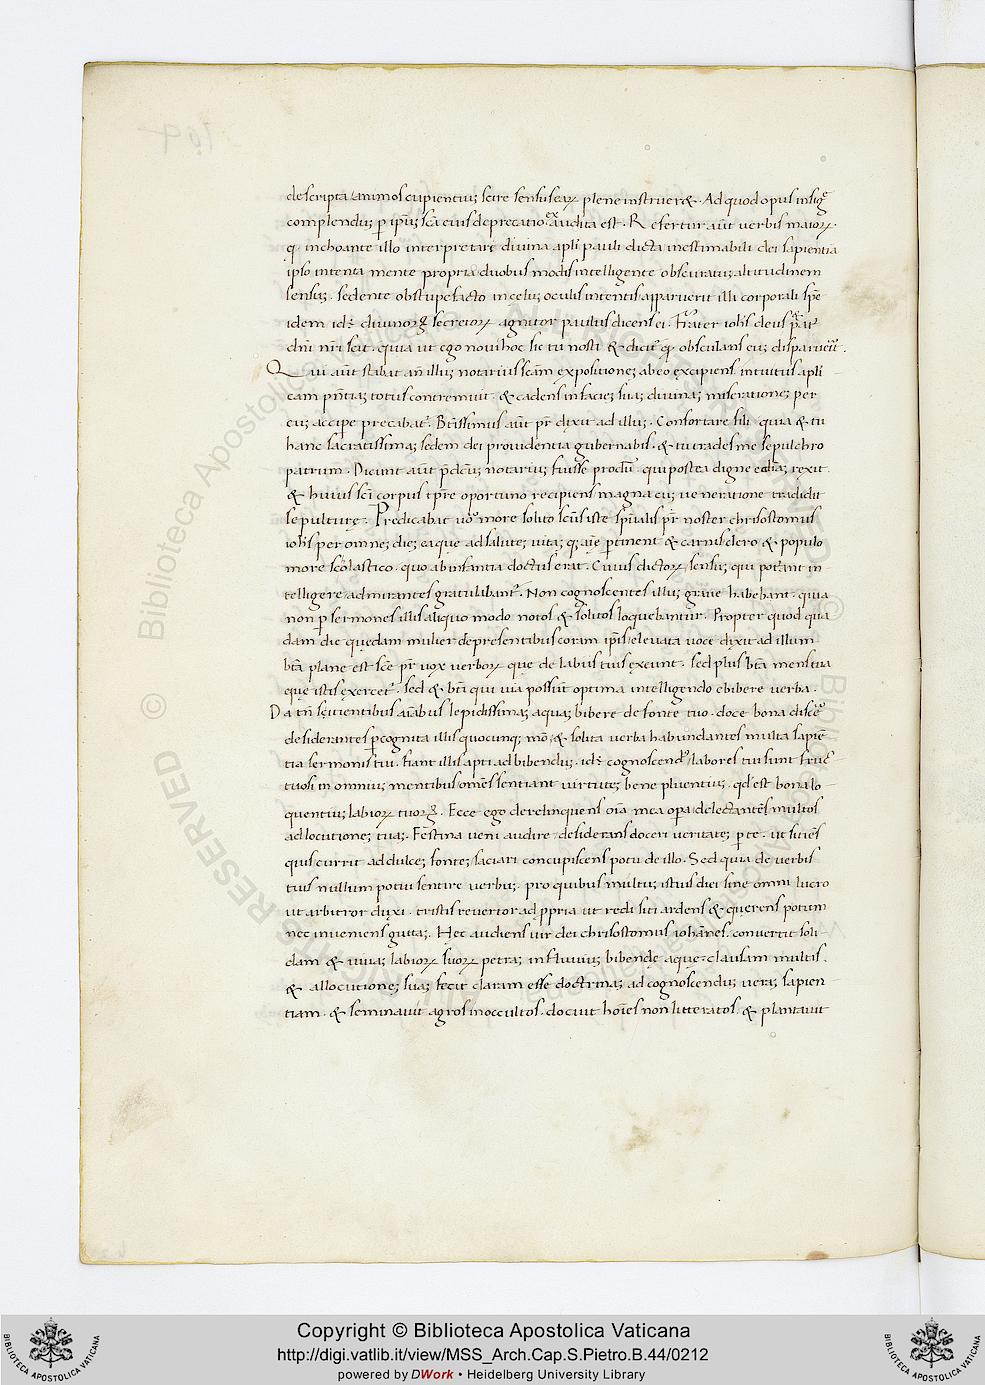 descripta animos cupientiuꝫ scire sensus eaꝝ plene instruerꝫ. Ad quod opus insigᵉ
complenduꝫ p ipm̄ sc̄a eius deprecatio exaudita est. Refertur aūt verbis maioꝝ.
q. inchoante illo interpretarę divina apl̄i pauli dicta inestimabili dei sapientia
ipso intenta mente propria duobus modis intelligente obscuratuꝫ altitudinem
sensuꝫ. sedente obstupefacto in cęluꝫ oculis intentis apparuerit illi corporali spē
idem secretoꝝ agnitor paulus dicens ei. Frater ioh̄s deus pat̄
dn̄i nr̄i scit. quia ut ego novi hoc sic tu nosti & dicit̄ obsculans euꝫ disparuiss̄.
Qui aūt stabat an̄ illuꝫ notarius sc̄am expositioneꝫ ab eo excipiens. intuitus apli
cam pn̄tiaꝫ totus contremuit. & cadens in facieꝫ suaꝫ divinaꝫ miserationeꝫ per
euꝫ accipe precabat̄. Btissimus aūt pr̄ dixit ad illuꝫ. Confortare fili quia & tu
hanc sacratissimaꝫ sedem dei providentia gubernabis. & tu trades me sepulchro
patrum. Dicunt aūt pdcūꝫ notariuꝫ fuisse proclū. qui postea digne eccl̄iaꝫ rexit.
& huius sc̄i corpus tp̄re oportuno recipiens magna cuꝫ veneratione tradidit
sepulturę. Predicabat vo more solito sc̄us iste spūalis pr̄ noster chrisostomus
ioh̄s per omneꝫ dieꝫ ea que ad saluteꝫ vitaꝫ pertinent & carnis clero & populo
more scolastico. quo ab infantia doctus erat. Cuius dictoꝝ sensuꝫ qui poterant in
telligere admirantes gratulabant̄. Non cognoscentes illuꝫ grave habebant. quia
non p sermones illis aliquo modo notos & solitos loquebantur. Propter quod qua
dam die quedam mulier de presentibus coram ipsis elevata voce dixit ad illum
bt̄a plane est sc̄e pr̄ vox verboꝝ que de labiis tuis exeunt. sed plus bt̄a mens tua
quę istis exercet̄. sed & bt̄i qui via possūt optima intelligendo ebibere verba.
Da tn̄ sitientibus aīabus lepidissimaꝫ aquaꝫ bibere de fonte tuo. doce bona disc̄e
desiderantes pcognita illis quocunqꝫ mō & solita verba habundantes multa sapiē
tia sermonis tui. fiant illis apti ad bibenduꝫ. idꝫ cognoscendū labores tui sunt fruc
tuosi in omniuꝫ mentibus oms̄ sentiant virtuteꝫ bene pluentiuꝫ. qd̄ est bona lo
quentiuꝫ labioꝝ tuoꝝ. Ecce ego derelinquens oīa mea opa delectantes multos
ad locutioneꝫ tuaꝫ. Festina veni audire desiderans doceri veritateꝫ p te. ut sitiēs
quis currit ad dulceꝫ fonteꝫ saciari concupiscens potu de illo. Sed quia de verbis
tuis nullum potui sentire verbuꝫ. pro quibus multuꝫ istius diei sine omni lucro
ut arbitror duxi. tristis revertor ad ppria ut redii siti ardens & querens potum
nec inveniens guttaꝫ. Hęc audiens vir dei chrisostomus ioh̄nes. convertit soli
dam & vivaꝫ labioꝝ suoꝝ petraꝫ in fluviuꝫ bibendę aque. clausam multis.
& allocutioneꝫ suaꝫ fecit claram esse doctrinaꝫ ad cognoscenduꝫ veraꝫ sapien
tiam. & seminavit agros in occultos. docuit hoīes non litteratos. & plantavit
Copyright © Biblioteca Apostolica Vaticana
http://digi.vatlib.it/view/MSS_Arch.Cap.S.Pietro.B.44/0212
powered by DWork • Heidelberg University Library